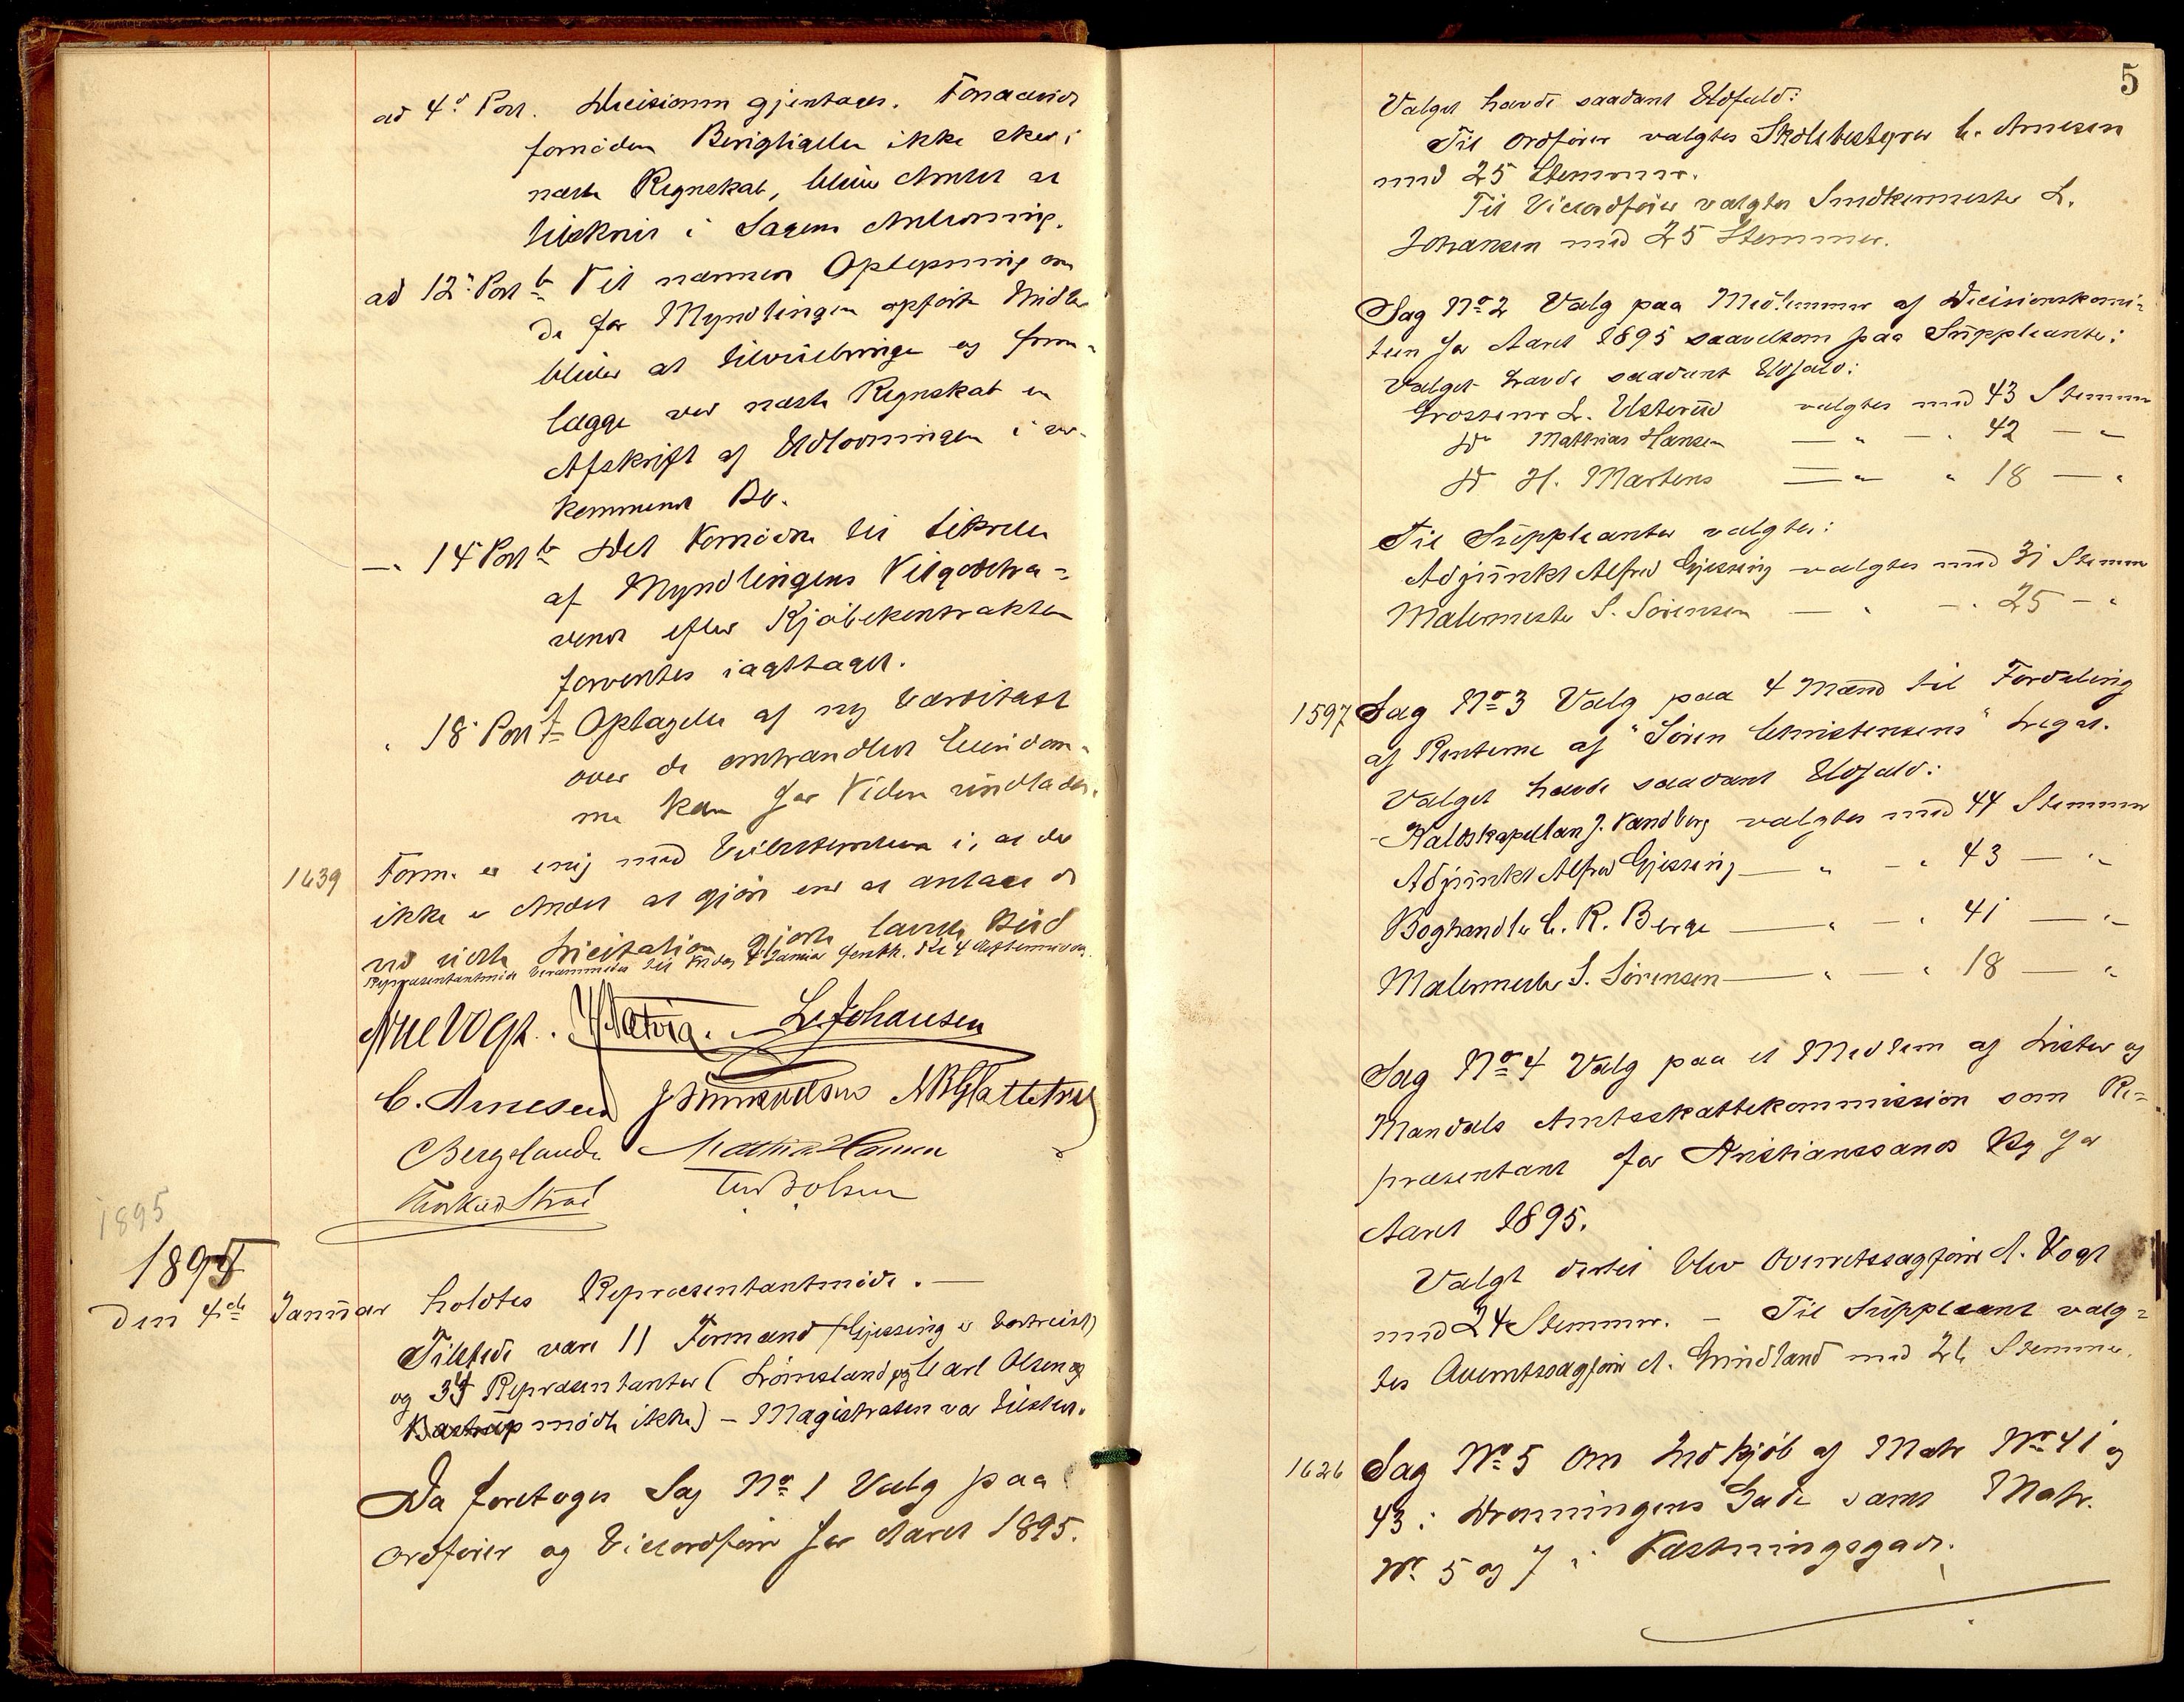 ad 4de Post. Decisionen gjentages. Forsaavidt
fornøden Berigtigelse ikke sker i
næste Regnskab, bliver Amtet at
tilskrive i Sagens Anledning.
ad 12te Post b Til nærmere Oplysning om
de for Myndlingen opførte Midler
bliver at tilveiebringe og frem-
lægge ved næste Regnskab en
Afskrift af Udlodningen i ved-
kommende Bo.
—"— 14 Post b Det Fornødne til Sikrelse
af Myndlingens Tilgodeha-
vende efter Kjøbekontrakten
forventes iagttaget.
" 18 Post f Optagelse af ny Værditaxt
over de omhandlede Eiendom-
me kan for Tiden undlades.
1639 Form. er enig med i, at der
ikke er Andet at gjøre end at antage de
ved sidste Licitation gjorte laveste Bud
Repræsentantmøde berammedes til Fredag 4 Januar førstk. Kl 4 Eftermiddag.
Arne Vogt. L. Johansen
C. Arnesen
Bergslands Mathias Hansen
1895
1895
Den 4de Januar holdtes Repræsentantmøde. —
Tilstede vare 11 Formænd (Gjessing er bortreist)
og 34 Repræsentanter (Lømsland og Carl Olsen og
Bastrup mødte ikke) – Magistraten var tilstede.
Da foretoges Sag No 1 Valg paa
Ordfører og Viceordfører for Aaret 1895.
5
Valget havde saadant Udfald:
Til Ordfører valgtes Skolebestyrer C. Arnesen
med 25 Stemmer.
Til Viceordfører valgtes Smedkermester L.
Johansen med 25 Stemmer.
Sag No 2 Valg paa Medlemmer af Decisionskomi-
teen for Aaret 1895 saavelsom paa Suppleanter:
Valget havde saadant Udfald:
Grosserer L. Usterud valgtes med 43 Stemmer
Do Mathias Hansen —"— —"— 42 —"—
Do H. Martens —"— " 18 —"
Til Suppleanter valgtes:
Adjunkt Alfred Gjessing valgtes med 31 Stemmer
Malermester S. Sørensen —"— —"— 25 —"
1597 Sag No 3 Valg paa 4 Mænd til Fordeling
af Renterne af "Søren Christensens" Legat.
Valget havde saadant Udfald:
Kaldskapellan J. Sandberg valgtes med 44 Stemmer
Adjunkt Alfred Gjessing —"— —"— 43 —"—
Boghandler C. R. Berge —"— —"— 41 —"—
Malermester S. Sørensen —"— —"— 18 —"—
Sag No 4 Valg paa et Medlem af Lister og
Mandals Amtsskattekommission som Re-
præsentant for Kristianssands By for
Aaret 1895.
Valgt dertil blev Overretssagfører A. Vogt
med 24 Stemmer. – Til Suppleant valg-
tes Overretssagfører A. Grindland med 26 Stemmer.
1626 Sag No 5 Om Indkjøb af Matr No 41 og
43 i Dronningens Gade samt Matr.
No 5 og 7 i Fæstningsgade.